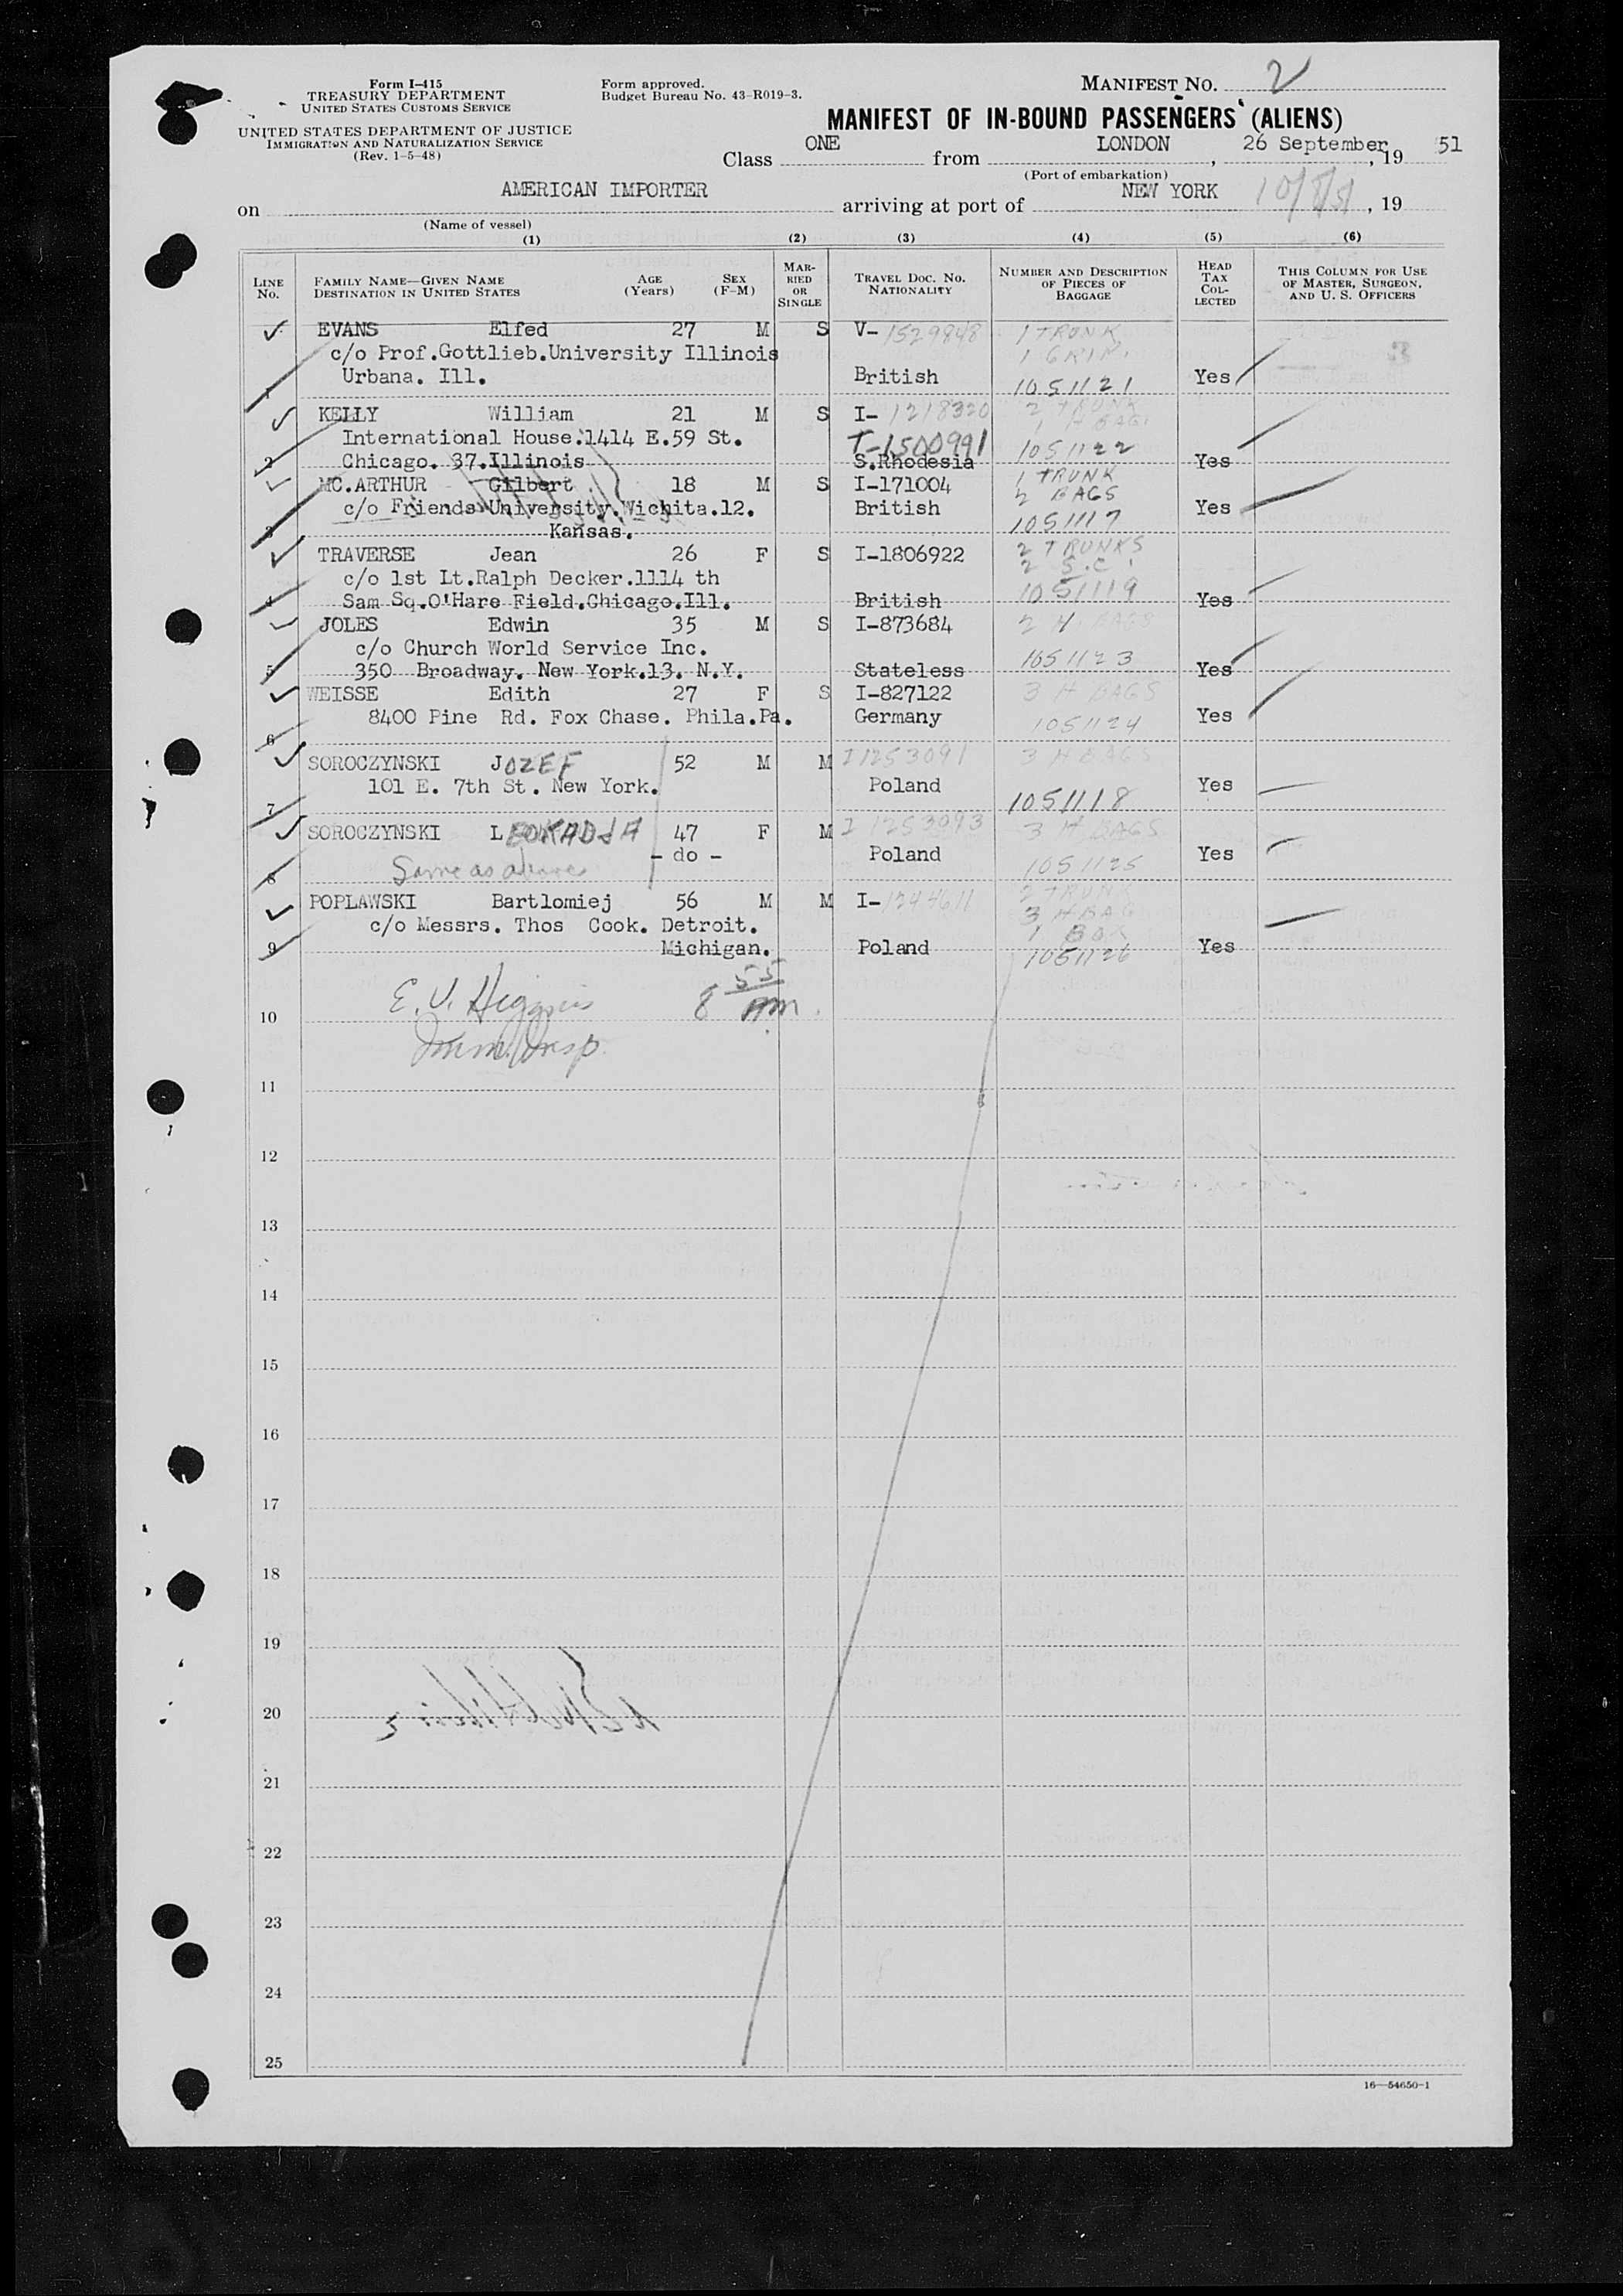 Form I-415
TREASURY DEPARTMENT
UNITED STATES CUSTOMS SERVICE
UNITED STATES DEPARTMENT OF JUSTICE
IMMIGRATION AND NATURALIZATION SERVICE
(Rev. 1-5-48)
Form approved.
Budget Bureau No. 43-R019-3.
MANIFEST NO. 2
MANIFEST OF IN-BOUND PASSENGERS (ALIENS)
Class ONE from LONDON, 26 September, 19 51
(Port of embarkation)
on AMERICAN IMPORTER arriving at port of NEW YORK 10/8/51, 19
(Name of vessel)
(1) (2) (3) (4) (5) (6)
LINE No. FAMILY NAME—GIVEN NAME DESTINATION IN UNITED STATES AGE (Years) SEX (F-M) MARRIED OR SINGLE TRAVEL DOC. NO. NATIONALITY NUMBER AND DESCRIPTION OF PIECES OF BAGGAGE HEAD TAX COLLECTED THIS COLUMN FOR USE OF MASTER, SURGEON, AND U. S. OFFICERS
EVANS Elfed 27 M S V-1529848 1 TRUNK
c/o Prof.Gottlieb.University Illinois 1 GRIP.
1 Urbana. Ill. British 1051121 Yes
KELLY William 21 M S I-1218320 2 TRUNK
International House.1414 E.59 St. T-1500991 1 H BAG.
2 Chicago. 37.Illinois S.Rhodesia 1051122 Yes
MC.ARTHUR Gilbert 18 M S I-171004 1 TRUNK
c/o Friends University.Wichita.12. British 2 BAGS Yes
3 Kansas. 1051117
TRAVERSE Jean 26 F S I-1806922 2 TRUNKS
c/o 1st Lt.Ralph Decker.1114 th 2 S.C.
4 Sam Sq.O'Hare Field.Chicago.Ill. British 1051119 Yes
JOLES Edwin 35 M S I-873684 2 H. BAGS
c/o Church World Service Inc.
5 350 Broadway. New York.13. N.Y. Stateless 1051123 Yes
WEISSE Edith 27 F S I-827122 3 H BAGS
8400 Pine Rd. Fox Chase. Phila.Pa. Germany 1051124 Yes
6
SOROCZYNSKI JOZEF 52 M M I1253091 3 H BAGS
101 E. 7th St. New York. Poland Yes
7 1051118
SOROCZYNSKI LEOKADJA 47 F M I 1253093 3 H BAGS
- do - Poland 1051125 Yes
8 Same as above
POPLAWSKI Bartlomiej 56 M M I-1244611 2 TRUNK
c/o Messrs. Thos Cook. Detroit. 3 H BAG
1 BOX
9 Michigan. Poland 1051126 Yes
E. V. Higgins 8 55 AM.
10
Imm. Insp.
11
12
13
14
15
16
17
18
19
20
21
22
23
24
25
16—54650-1